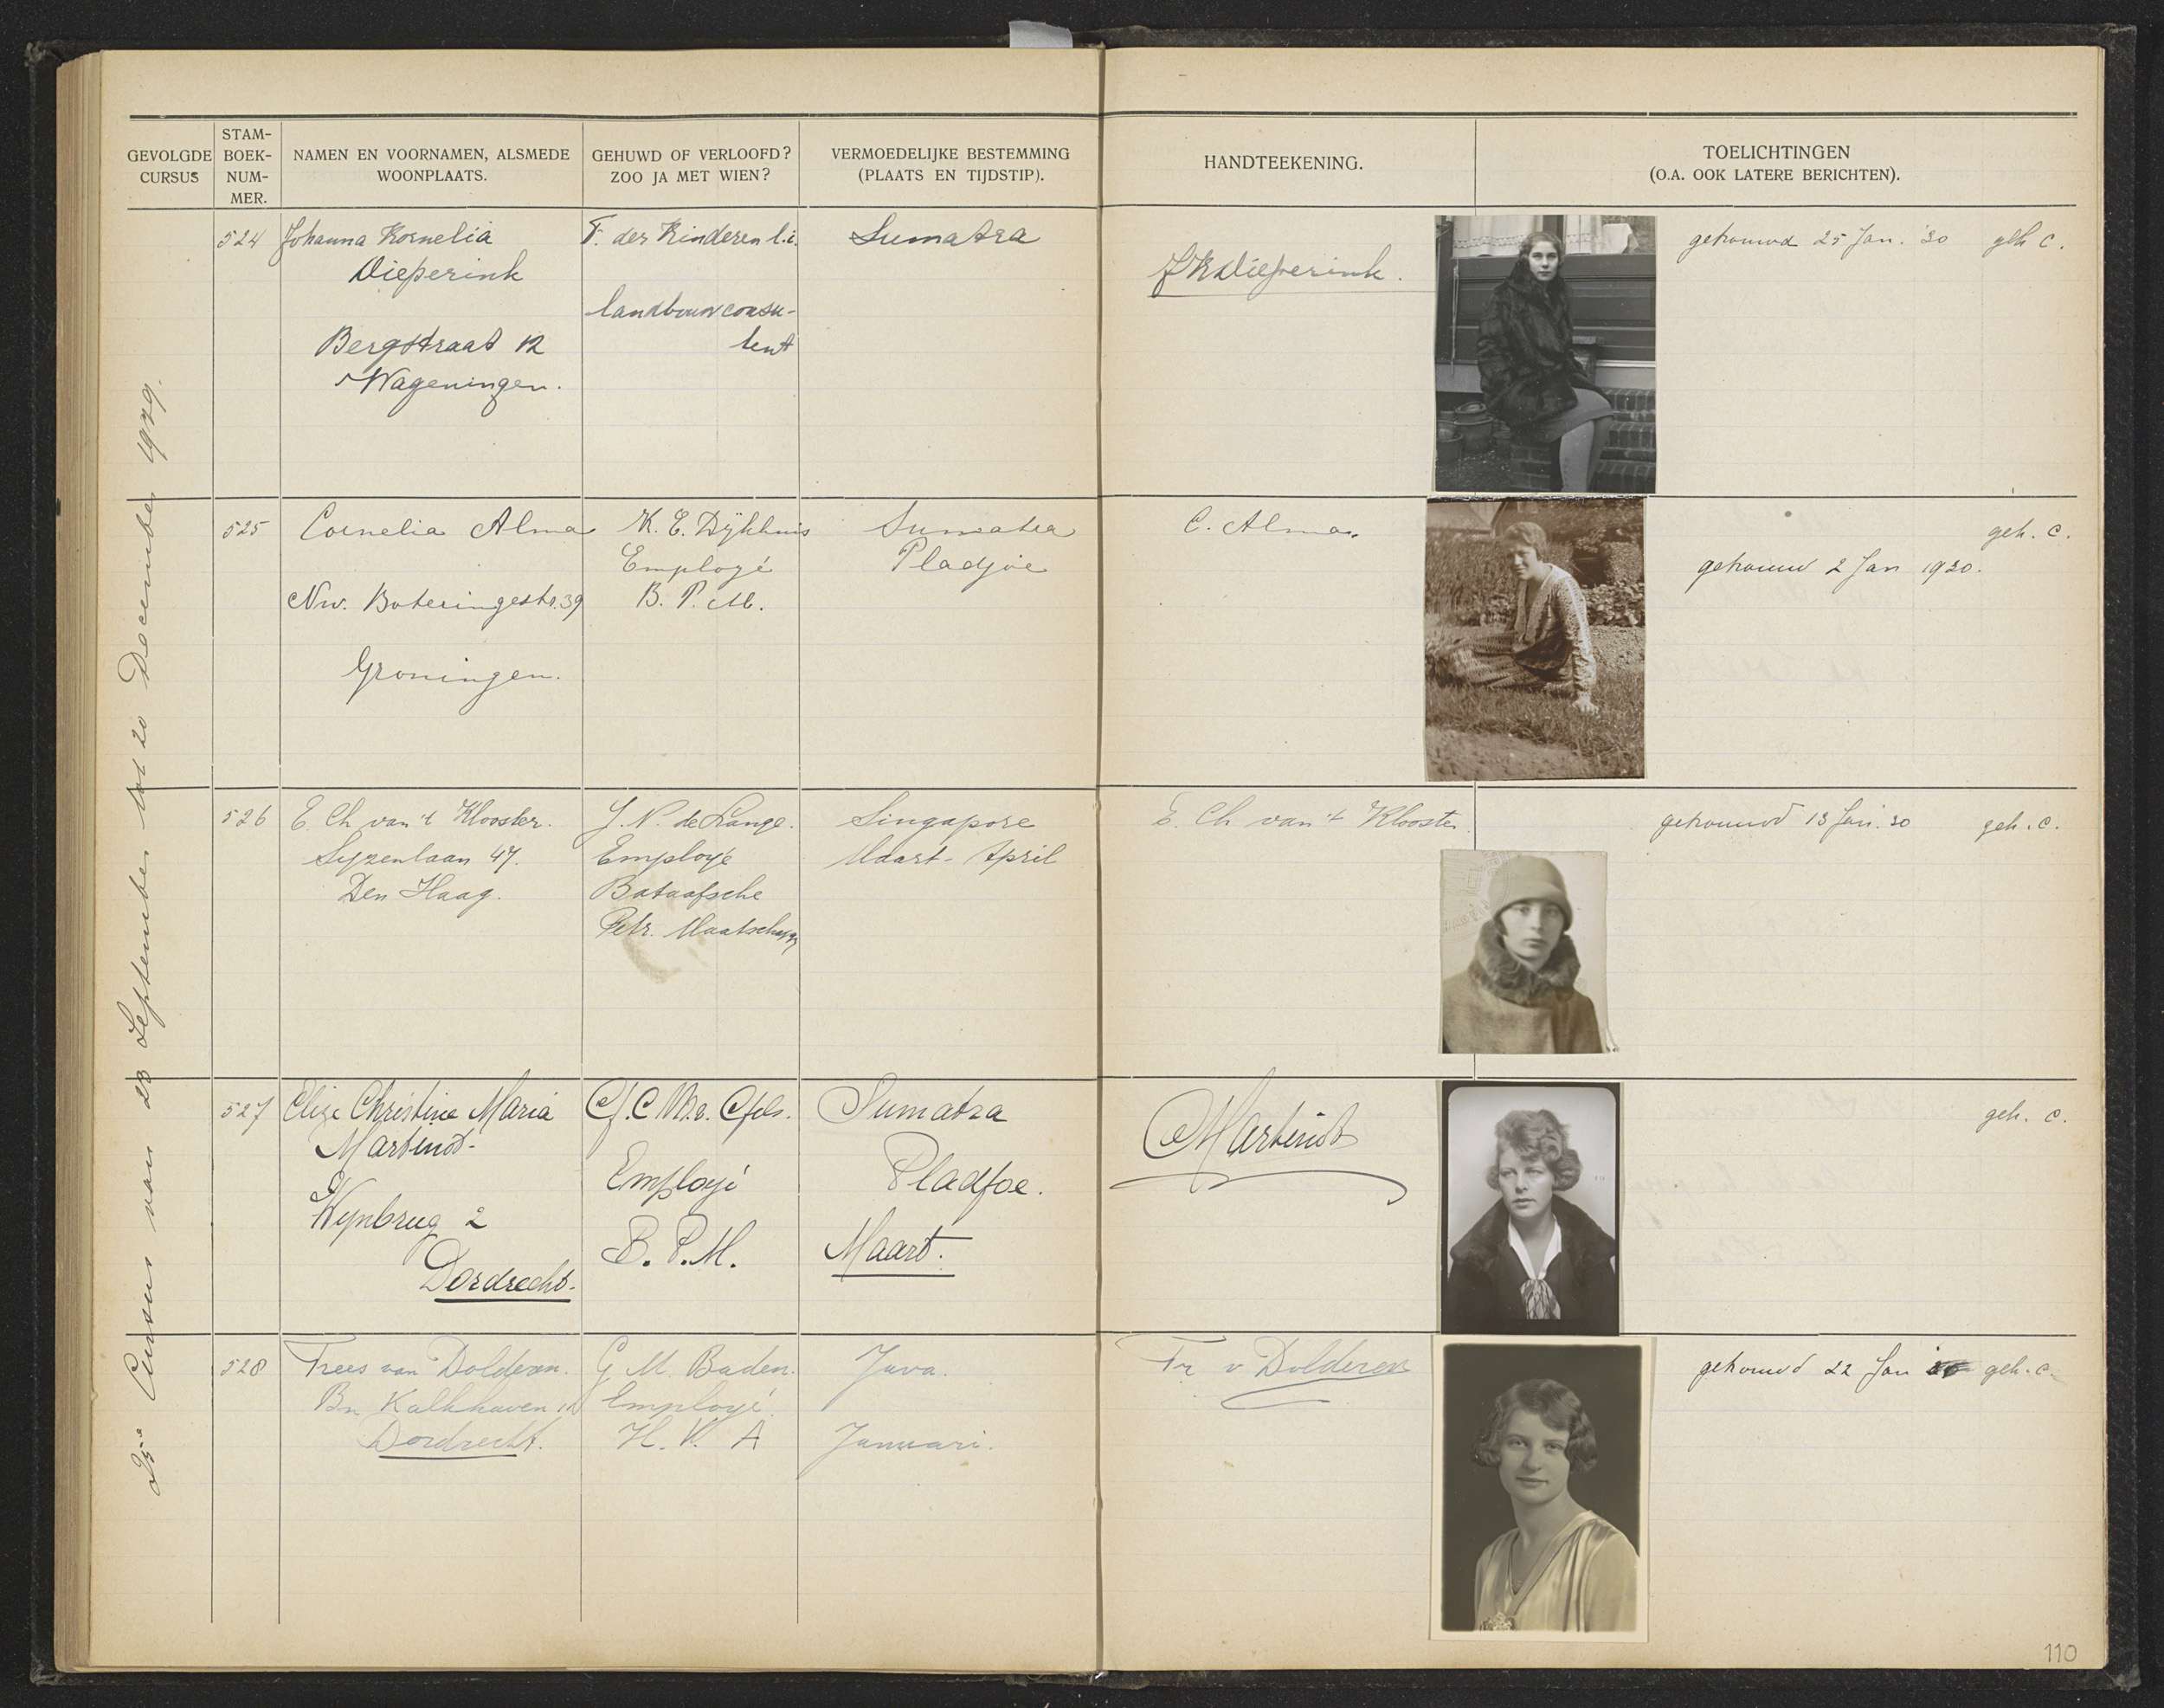 GEVOLGDE CURSUS
STAM-BOEK-NUM-MER.
NAMEN EN VOORNAMEN, ALSMEDE WOONPLAATS.
GEHUWD OF VERLOOFD? ZOO JA MET WIEN?
VERMOEDELIJKE BESTEMMING (PLAATS EN TIJDSTIP).
HANDTEEKENING.
TOELICHTINGEN
(O.A. OOK LATERE BERICHTEN).
Cursus van 23 September tot 20 December 1929.
524
Johanna Kornelia
Dieperink
Bergstraat 12
Wageningen.
F. der Kinderen l.i.
landbouwconsu-
lent
Sumatra
JKDieperink.
getrouwd 25 Jan. '30 geh c.
525
Cornelia Alma
Nw. Boteringestr. 39
Groningen.
K. E. Dijkhuis
Employé
B. P. M.
Sumatra
Pladjoe
C. Alma.
geh. c.
getrouwd 2 Jan 1930.
526
E. Ch van 't Klooster.
47.
Den Haag.
J. N. de Lange.
Employé
Bataafsche
Petr. Maatschappij
Singapore
Maart - April
E. Ch van 't Klooster
getrouwd 13 Jan. 30 geh. c.
527
Elize Christine Maria
Martinot
Wijnbrug 2
Dordrecht.
Employé
B. P. M.
Sumatra
Pladjoe.
Maart.
Martinot
geh. c.
528
Trees van Dolderen.
Bn Kalkhaven
Dordrecht.
G M. Baden.
Employé
H. V. A
Java.
Januari.
Tr v Dolderen
getrouwd 22 Jan 30 geh. c.
110